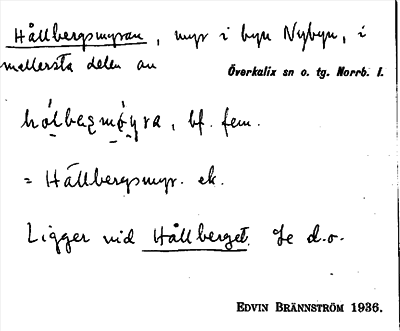 Hållbergsmyran, myr i byn Nybyn, i
mellersta delen av
Överkalix sn o. tg. Norrb. l.
hólbeʀgmǿyra, bf. fem.
= Hållbergsmyr. ek.
Ligger vid Hållberget. Se d.o.
EDVIN BRÄNNSTRÖM 1936.